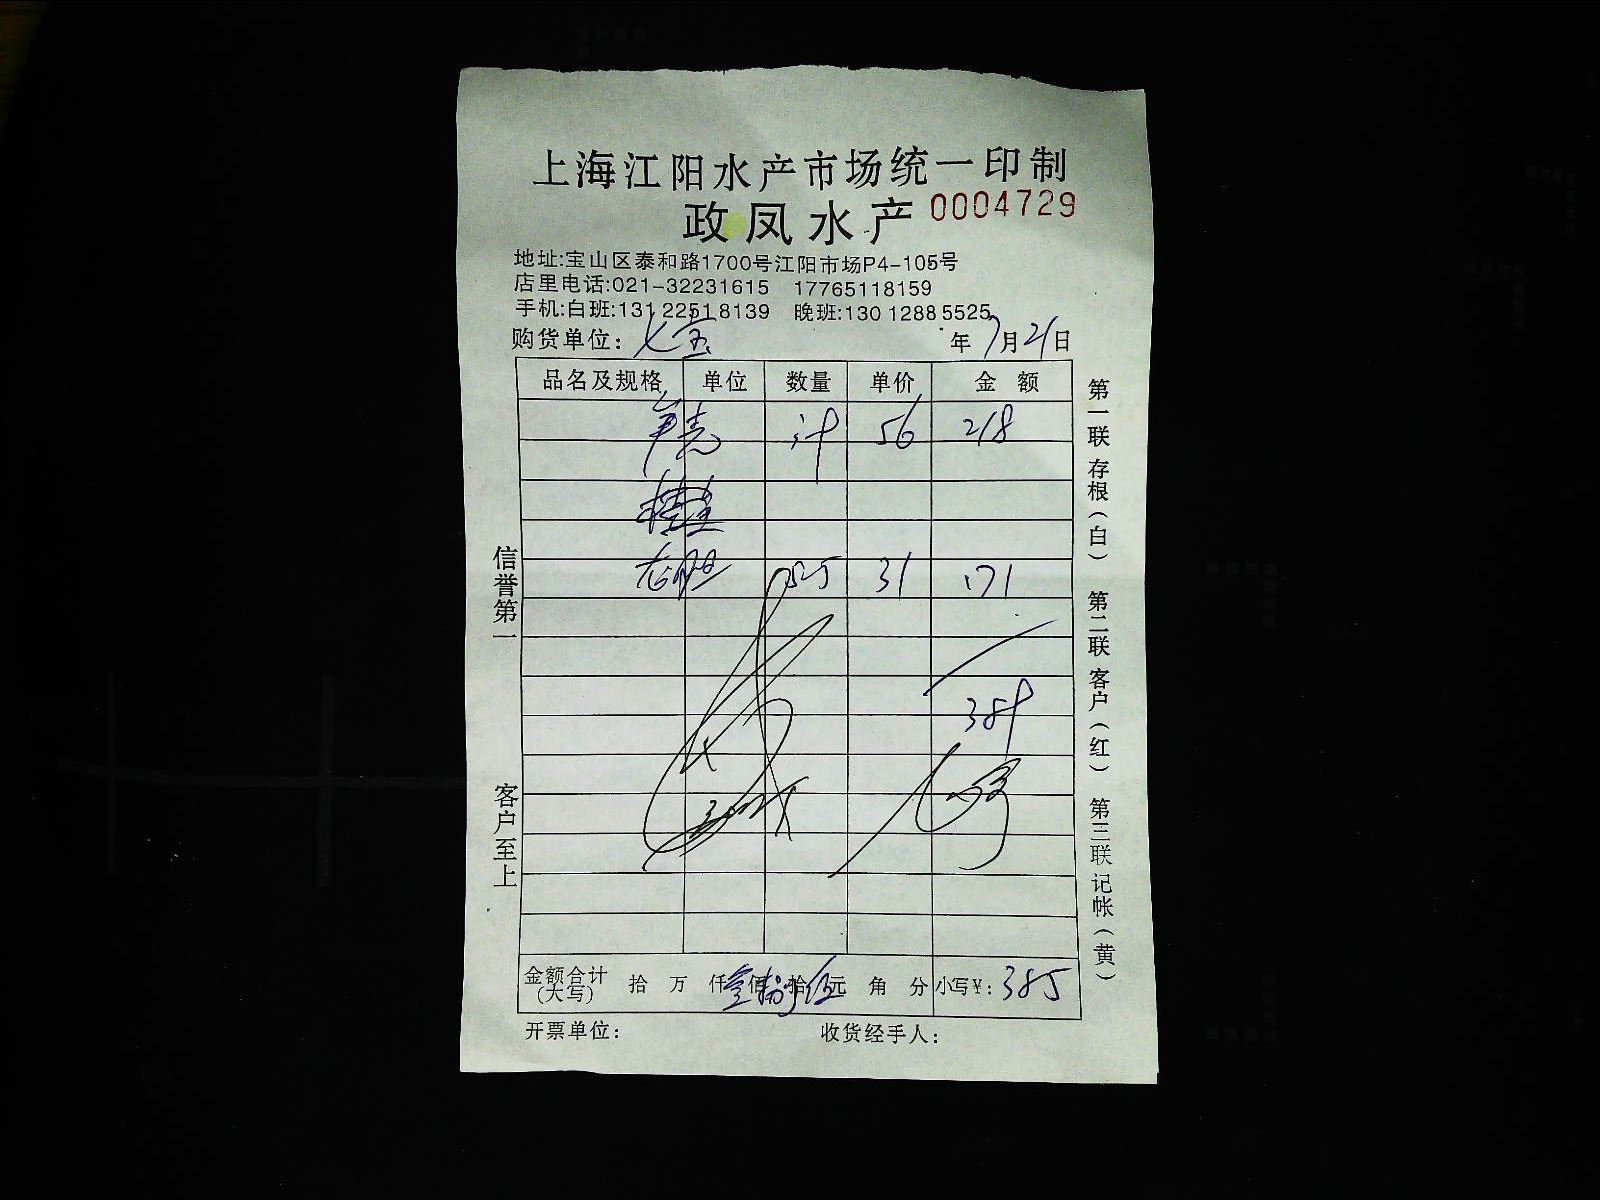 上海江阳水产市场统一印制
政凤水产 0004729
地址:宝山区泰和路1700号江阳市场P4-105号
店里电话:021-32231615 17765118159
手机:白班:131 2251 8139 晚班:130 1288 5525
购货单位: 七宝 年 7月21日
品名及规格 单位 数量 单价 金额
56 218
31 171
金额合计(大写) 拾 万 仟 佰 拾 元 角 分 小写¥: 385
开票单位: 收货经手人:
信誉第一 客户至上
第一联存根(白) 第二联客户(红) 第三联记帐(黄)